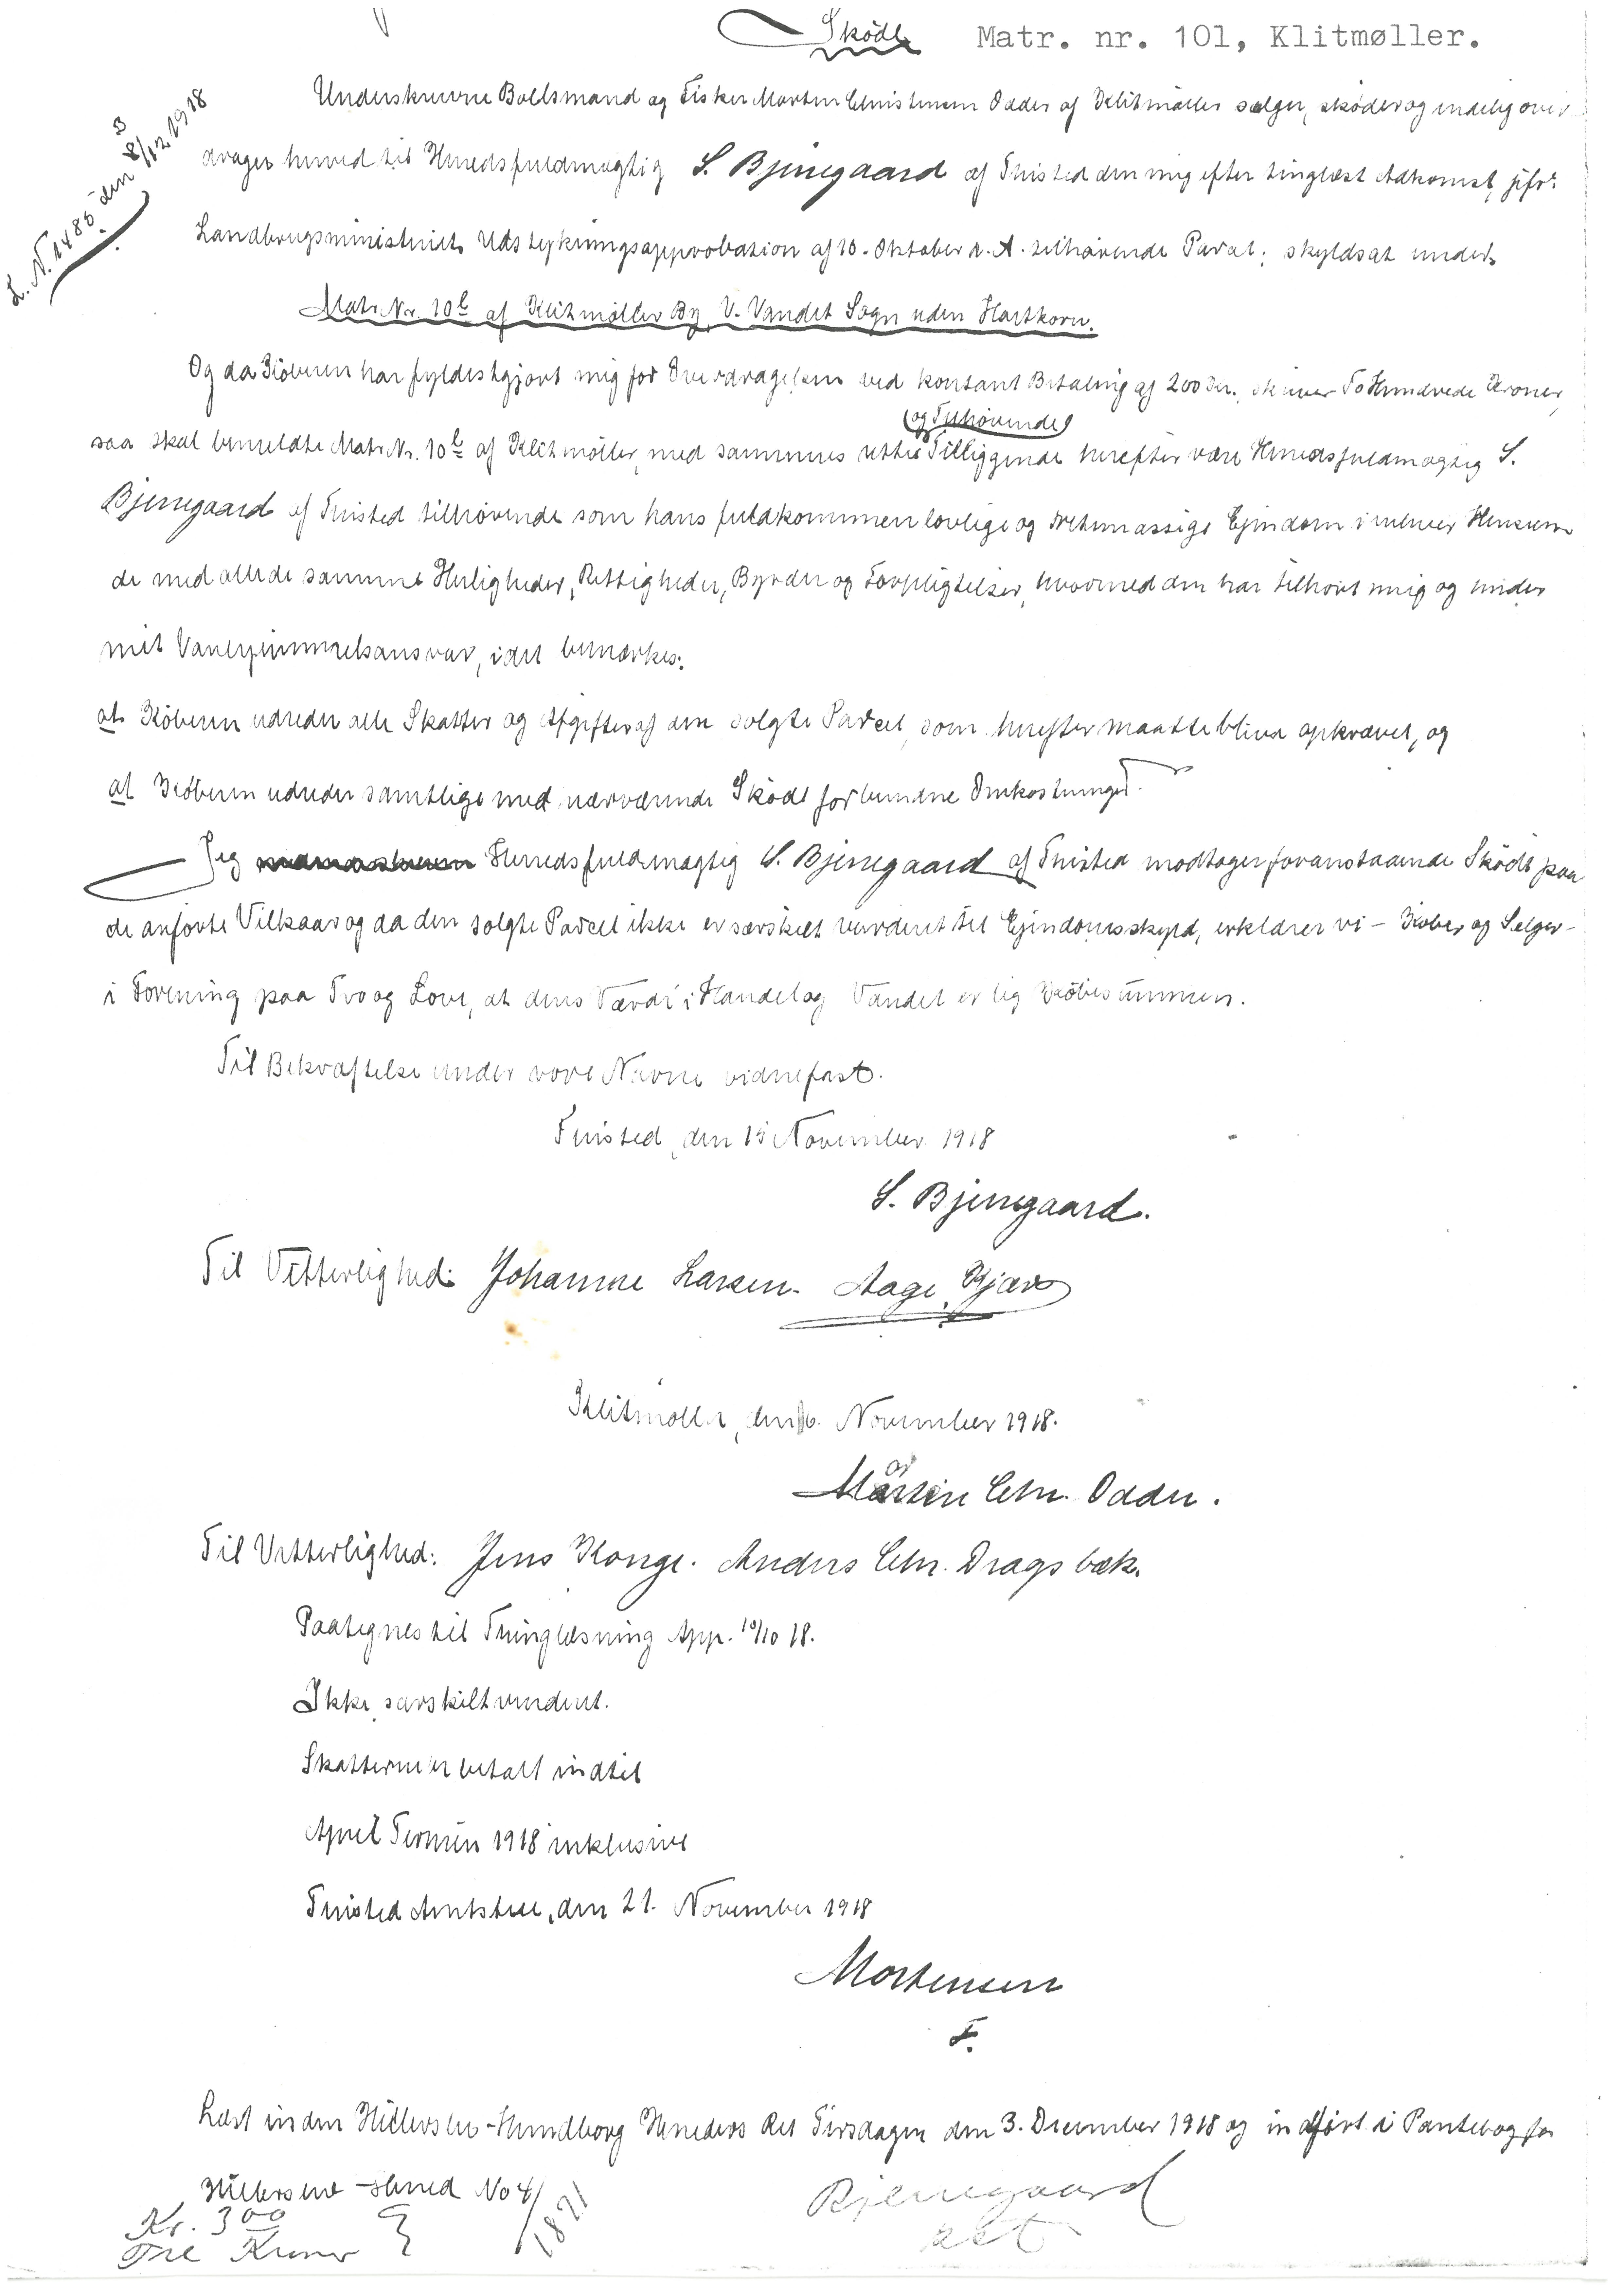 Skøde Matr. nr. 10l, Klitmøller.
L. N. 1486 den 3/12 1918
Underskrevne Boelsmand og Fisker Morten Christensen Odder af Klitmøller sælger, skøder og endelig over
drager herved til Herredsfuldmægtig S. Bjerregaard af Thisted den mig efter tinglæst Adkomst, jfr.
Landbrugsministeriets Udstykningsapprobation af 10. Oktober d. A. tilhørende Parcel, skyldsat under
Matr. Nr. 10l af Klitmøller By, V. Vandet Sogn uden Hartkorn.
Og da Køberen har fyldestgjort mig for Overdragelsen ved kontant Betaling af 200 Kr., skriver To Hundrede Kroner,
saa skal bemeldte Matr. Nr. 10l af Klitmøller med sammes rette Tilliggende (og Tilhørende) herefter være Herredsfuldmægtig S.
Bjerregaard af Thisted tilhørende som hans fuldkommen lovlige og retmæssige Ejendom i enhver Henseen
de med alle de samme Herligheder, Rettigheder, Byrder og Forpligtelser, hvormed den har tilhørt mig og under
mit Vanhjemmelsansvar, idet bemærkes:
at Køberen udreder alle Skatter og Afgifter af den solgte Parcel, som herefter maatte blive opkrævet, og
at Køberen udreder samtlige med nærværende Skøde forbundne Omkostninger.
Jeg Herredsfuldmægtig S. Bjerregaard af Thisted modtager foranstaaende Skøde paa
de anførte Vilkaar og da den solgte Parcel ikke er særskilt vurderet til Ejendomsskyld, erklærer vi – Køber og Sælger –
i Forening paa Tro og Love, at dens Værdi i Handel og Vandel er lig Købesummen.
Til Bekræftelse under vore Navne vidnefast.
Thisted, den 15 November 1918
S. Bjerregaard.
Til Vitterlighed: Johanne Larsen. Aage Kjær
Klitmøller, den 16. November 1918.
Morten Chr. Odder.
Til Vitterlighed: Jens Konge. Anders Chr. Dragsbæk.
Paategnes til Thinglæsning App. 10/10 18.
Ikke særskilt vurderet.
Skatterne er betalt indtil
April Termin 1918 inklusive
Thisted Amtstue, den 21. November 1918
Mortensen
F.
Læst inden Hillerslev-Hundborg Herreders Ret Tirsdagen den 3. December 1918 og indført i Pantebog for
Hillerslev Herred No 4/
Kr. 300
Tre Kroner
Bjerregaard
cst